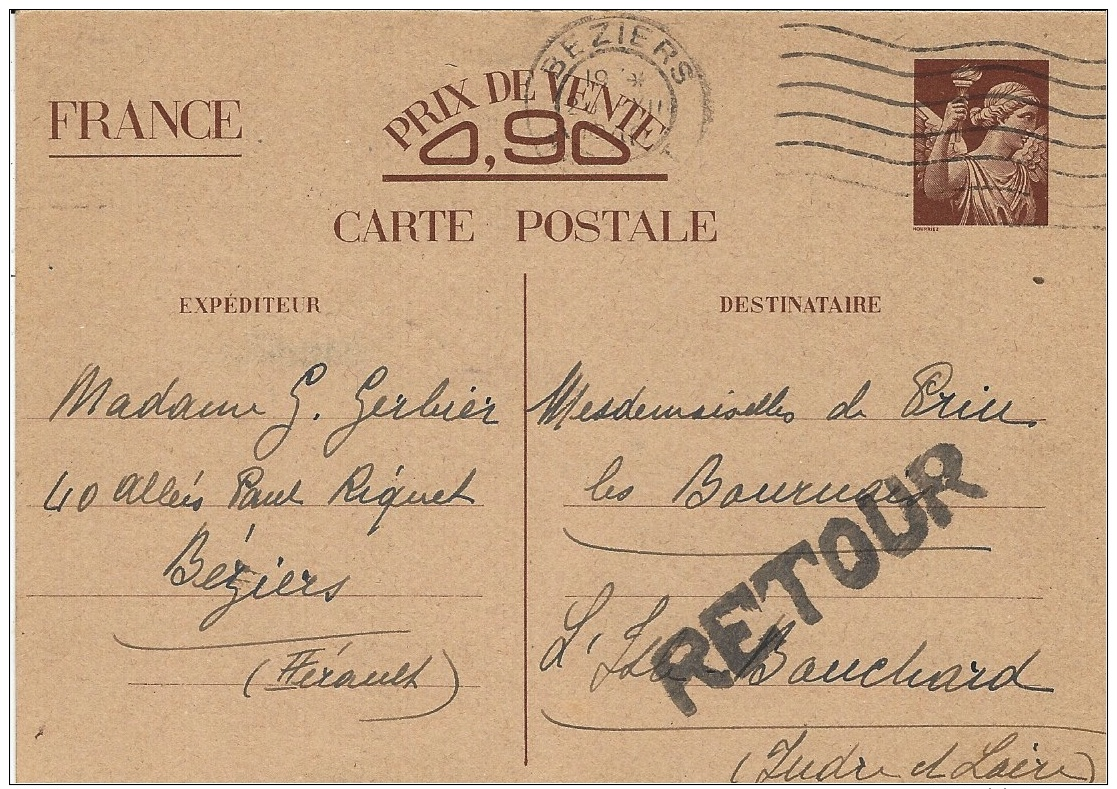 BEZIERS
FRANCE
PRIX DE VENTE
0,90
CARTE POSTALE
EXPÉDITEUR
Madame G. Gerbier
40 Allées Paul Riquet
Béziers
(Hérault)
DESTINATAIRE
Mesdemoiselles de
les
RETOUR
L'Isle-Bouchard
(Indre et Loire)